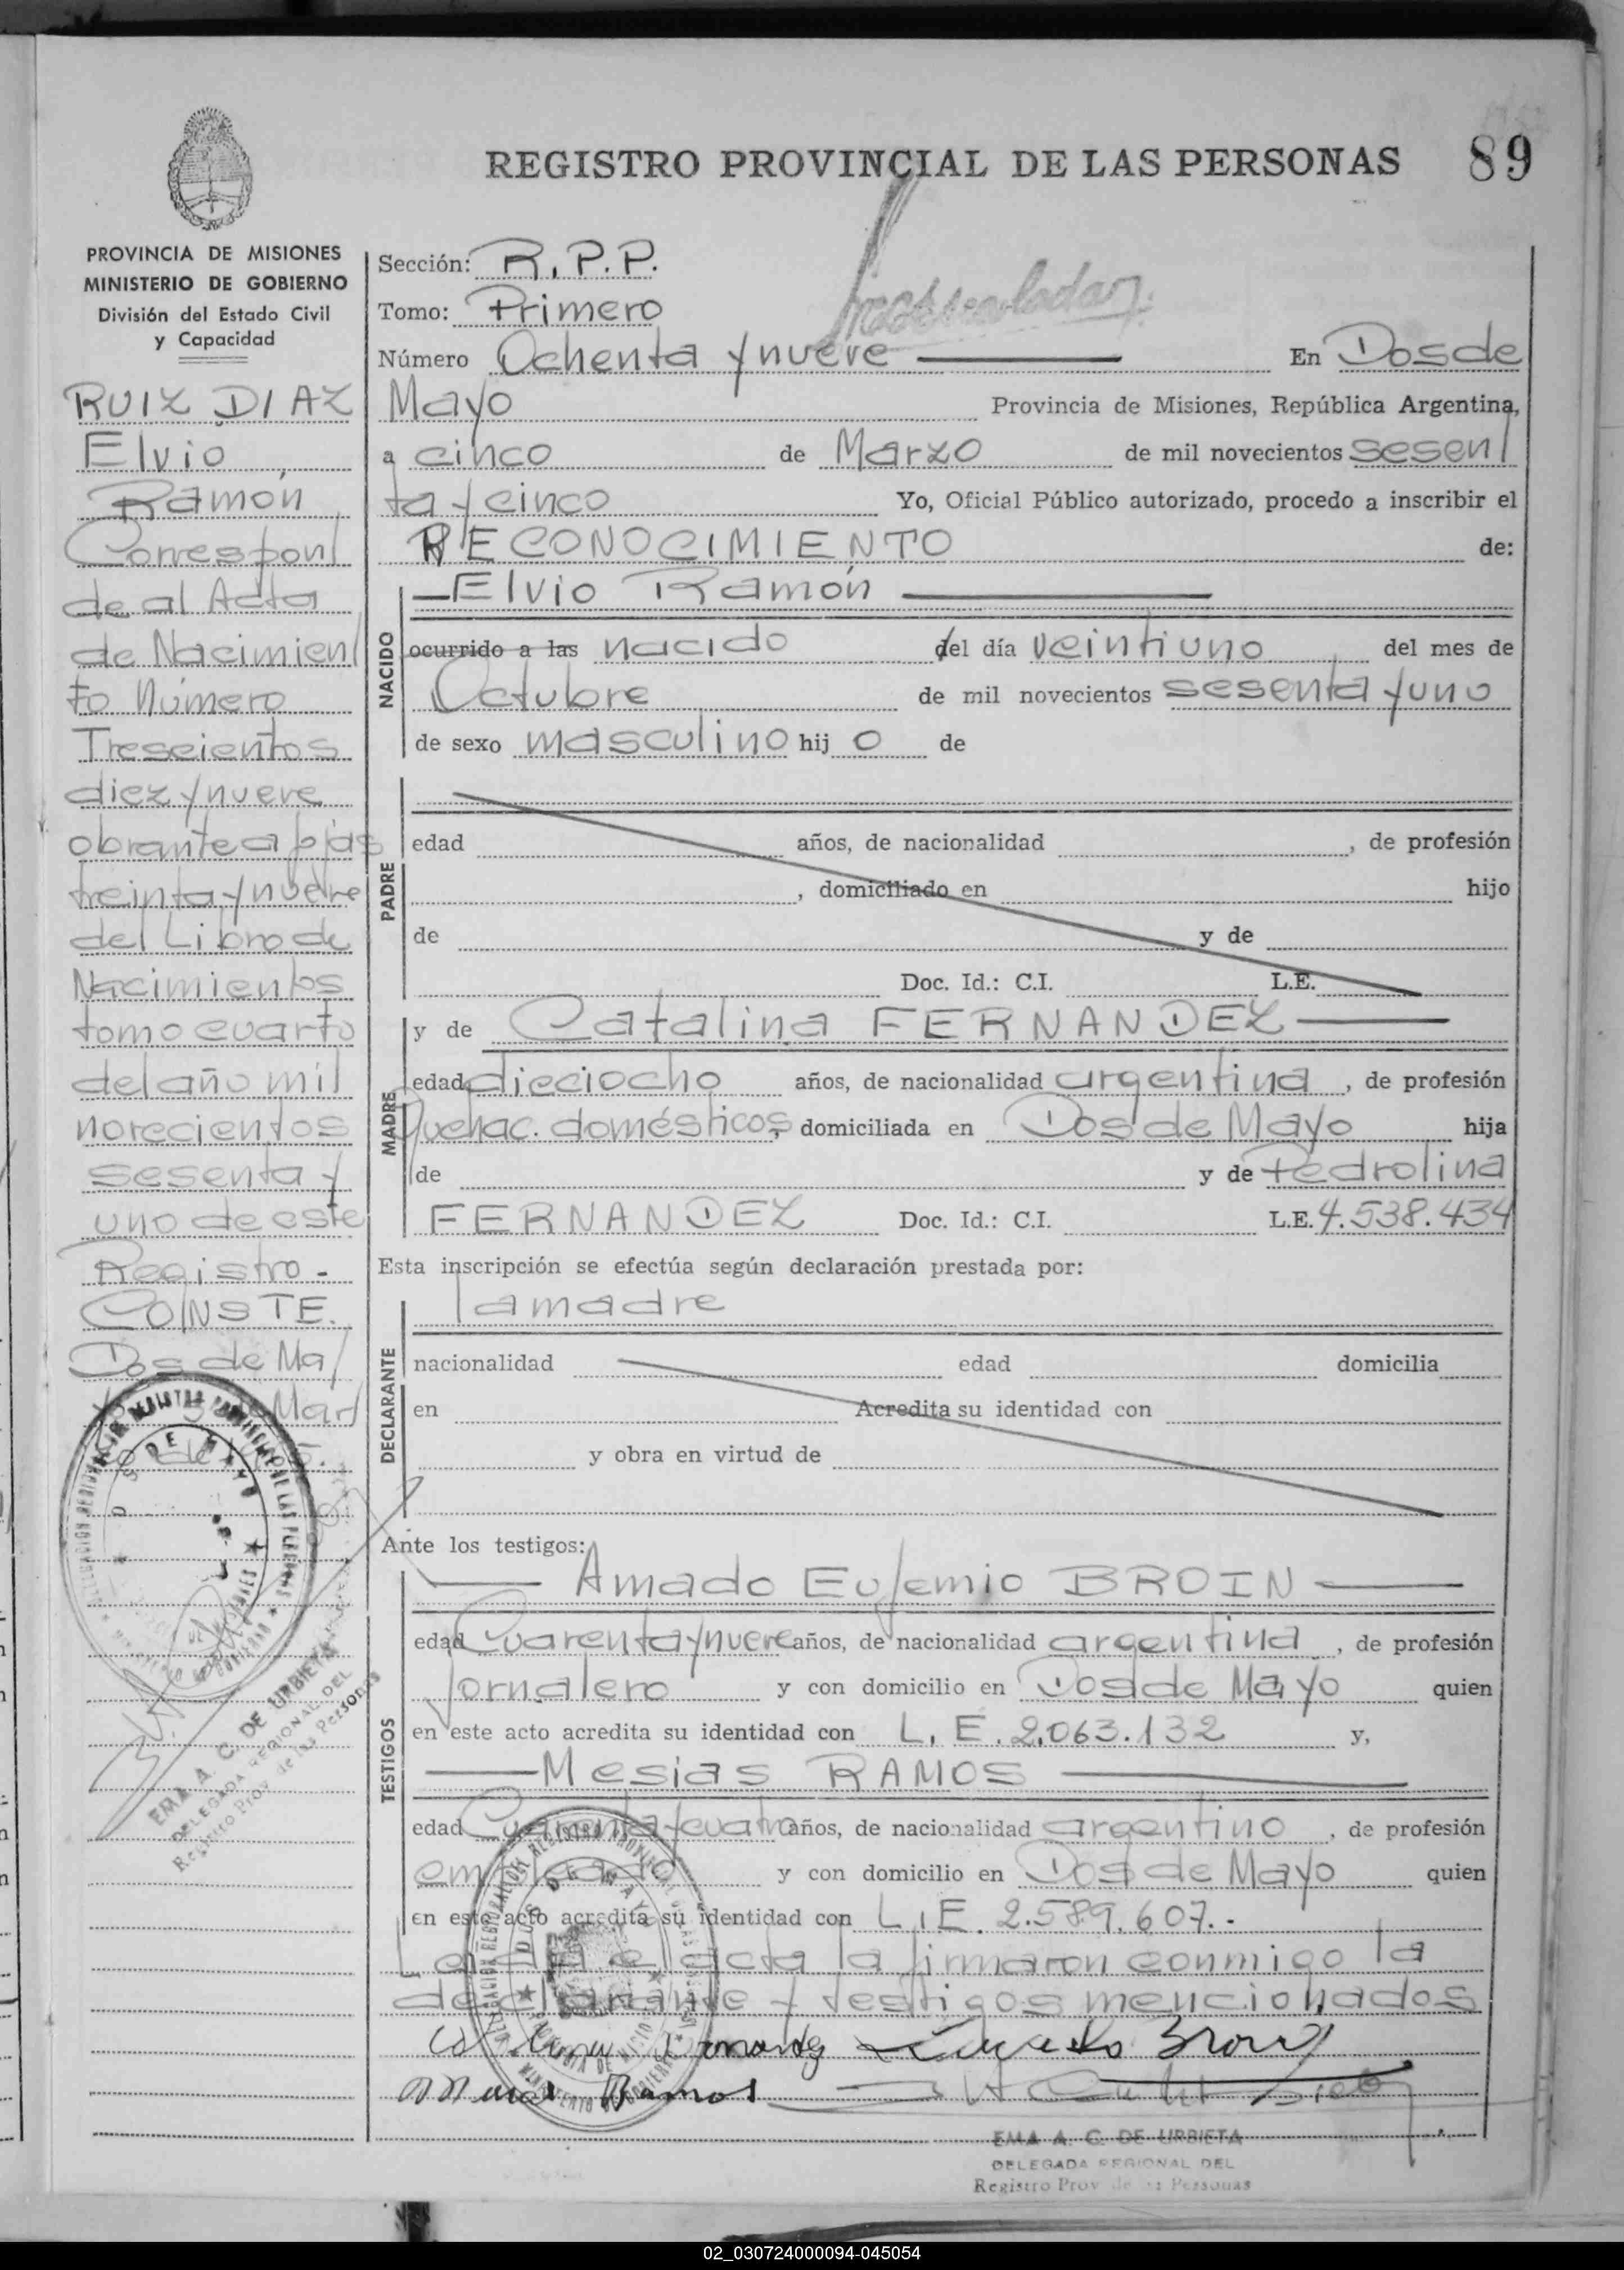 89
REGISTRO PROVINCIAL DE LAS PERSONAS
PROVINCIA DE MISIONES
MINISTERIO DE GOBIERNO
División del Estado Civil
y Capacidad
RUIZ DIAZ
Elvio
Ramón
Correspon
de al Acta
de Nacimien
to Número
Trescientos
diez y nueve
obrante a fjas
treinta y nueve
del Libro de
Nacimientos
tomo cuarto
del año mil
novecientos
sesenta y
uno de este
Registro -
CONSTE.
Dos de Ma
Mar
EMA A. C. DE URBIETA
DELEGADA REGIONAL DEL
Registro Prov de las Personas
Sección: R.P.P.
Tomo: Primero
Número Ochenta y nueve En Dos de
Mayo Provincia de Misiones, República Argentina,
a cinco de Marzo de mil novecientos sesen
ta y cinco Yo, Oficial Público autorizado, procedo a inscribir el
RECONOCIMIENTO de:
Elvio Ramón
NACIDO
ocurrido a las nacido del día veintiuno del mes de
Octubre de mil novecientos sesenta y uno
de sexo masculino hij o de
PADRE
edad años, de nacionalidad , de profesión
, domiciliado en hijo
de y de
Doc. Id.: C.I. L.E.
MADRE
y de Catalina FERNANDEZ
edad dieciocho años, de nacionalidad argentina, de profesión
Quehac. domésticos, domiciliada en Dos de Mayo hija
de y de Pedrolina
FERNANDEZ Doc. Id.: C.I. L.E. 4.538.434
Esta inscripción se efectúa según declaración prestada por:
la madre
DECLARANTE
nacionalidad edad domicilia
en Acredita su identidad con
y obra en virtud de
Ante los testigos:
Amado Eufemio BROIN
TESTIGOS
edad Cuarenta y nueve años, de nacionalidad argentina, de profesión
Jornalero y con domicilio en Dos de Mayo quien
en este acto acredita su identidad con L.E. 2.063.132 y,
Mesias RAMOS
edad Cuarenta y cuatro años, de nacionalidad argentino, de profesión
empleado y con domicilio en Dos de Mayo quien
en este acto acredita su identidad con L.E. 2.589.607.-
Leida el acta la firmaron conmigo la
declarante y testigos mencionados
Ramos
EMA A. C. DE URBIETA
DELEGADA REGIONAL DEL
Registro Prov de las Personas
02_030724000094-045054